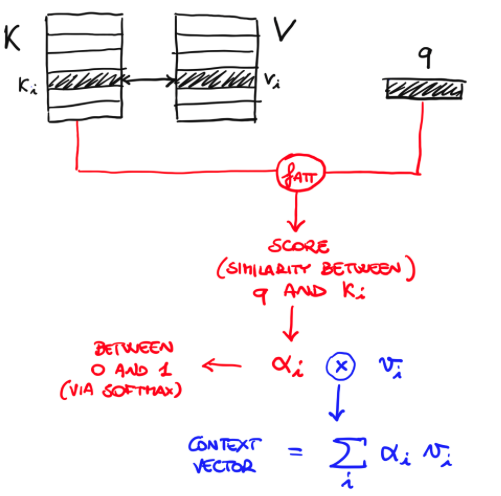 K V q
Ki vi
fATT
SCORE
(SIMILARITY BETWEEN)
q AND Ki
BETWEEN
0 AND 1
(VIA SOFTMAX)
← αi ⊗ vi
CONTEXT
VECTOR
= ∑i αi vi